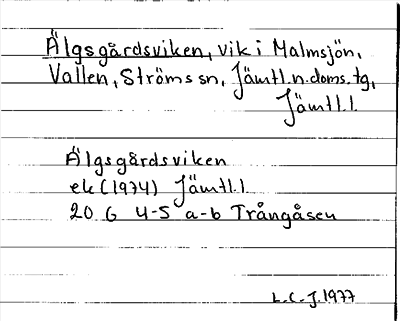 Älgsgårdsviken, vik i Malmsjön,
Vallen, Ströms sn, Jämtl.n.doms.tg,
Jämtl.l.
Älgsgårdsviken
ek (1974) Jämtl.l.
20 G 4-5 a-b Trångåsen
L.C.J. 1977